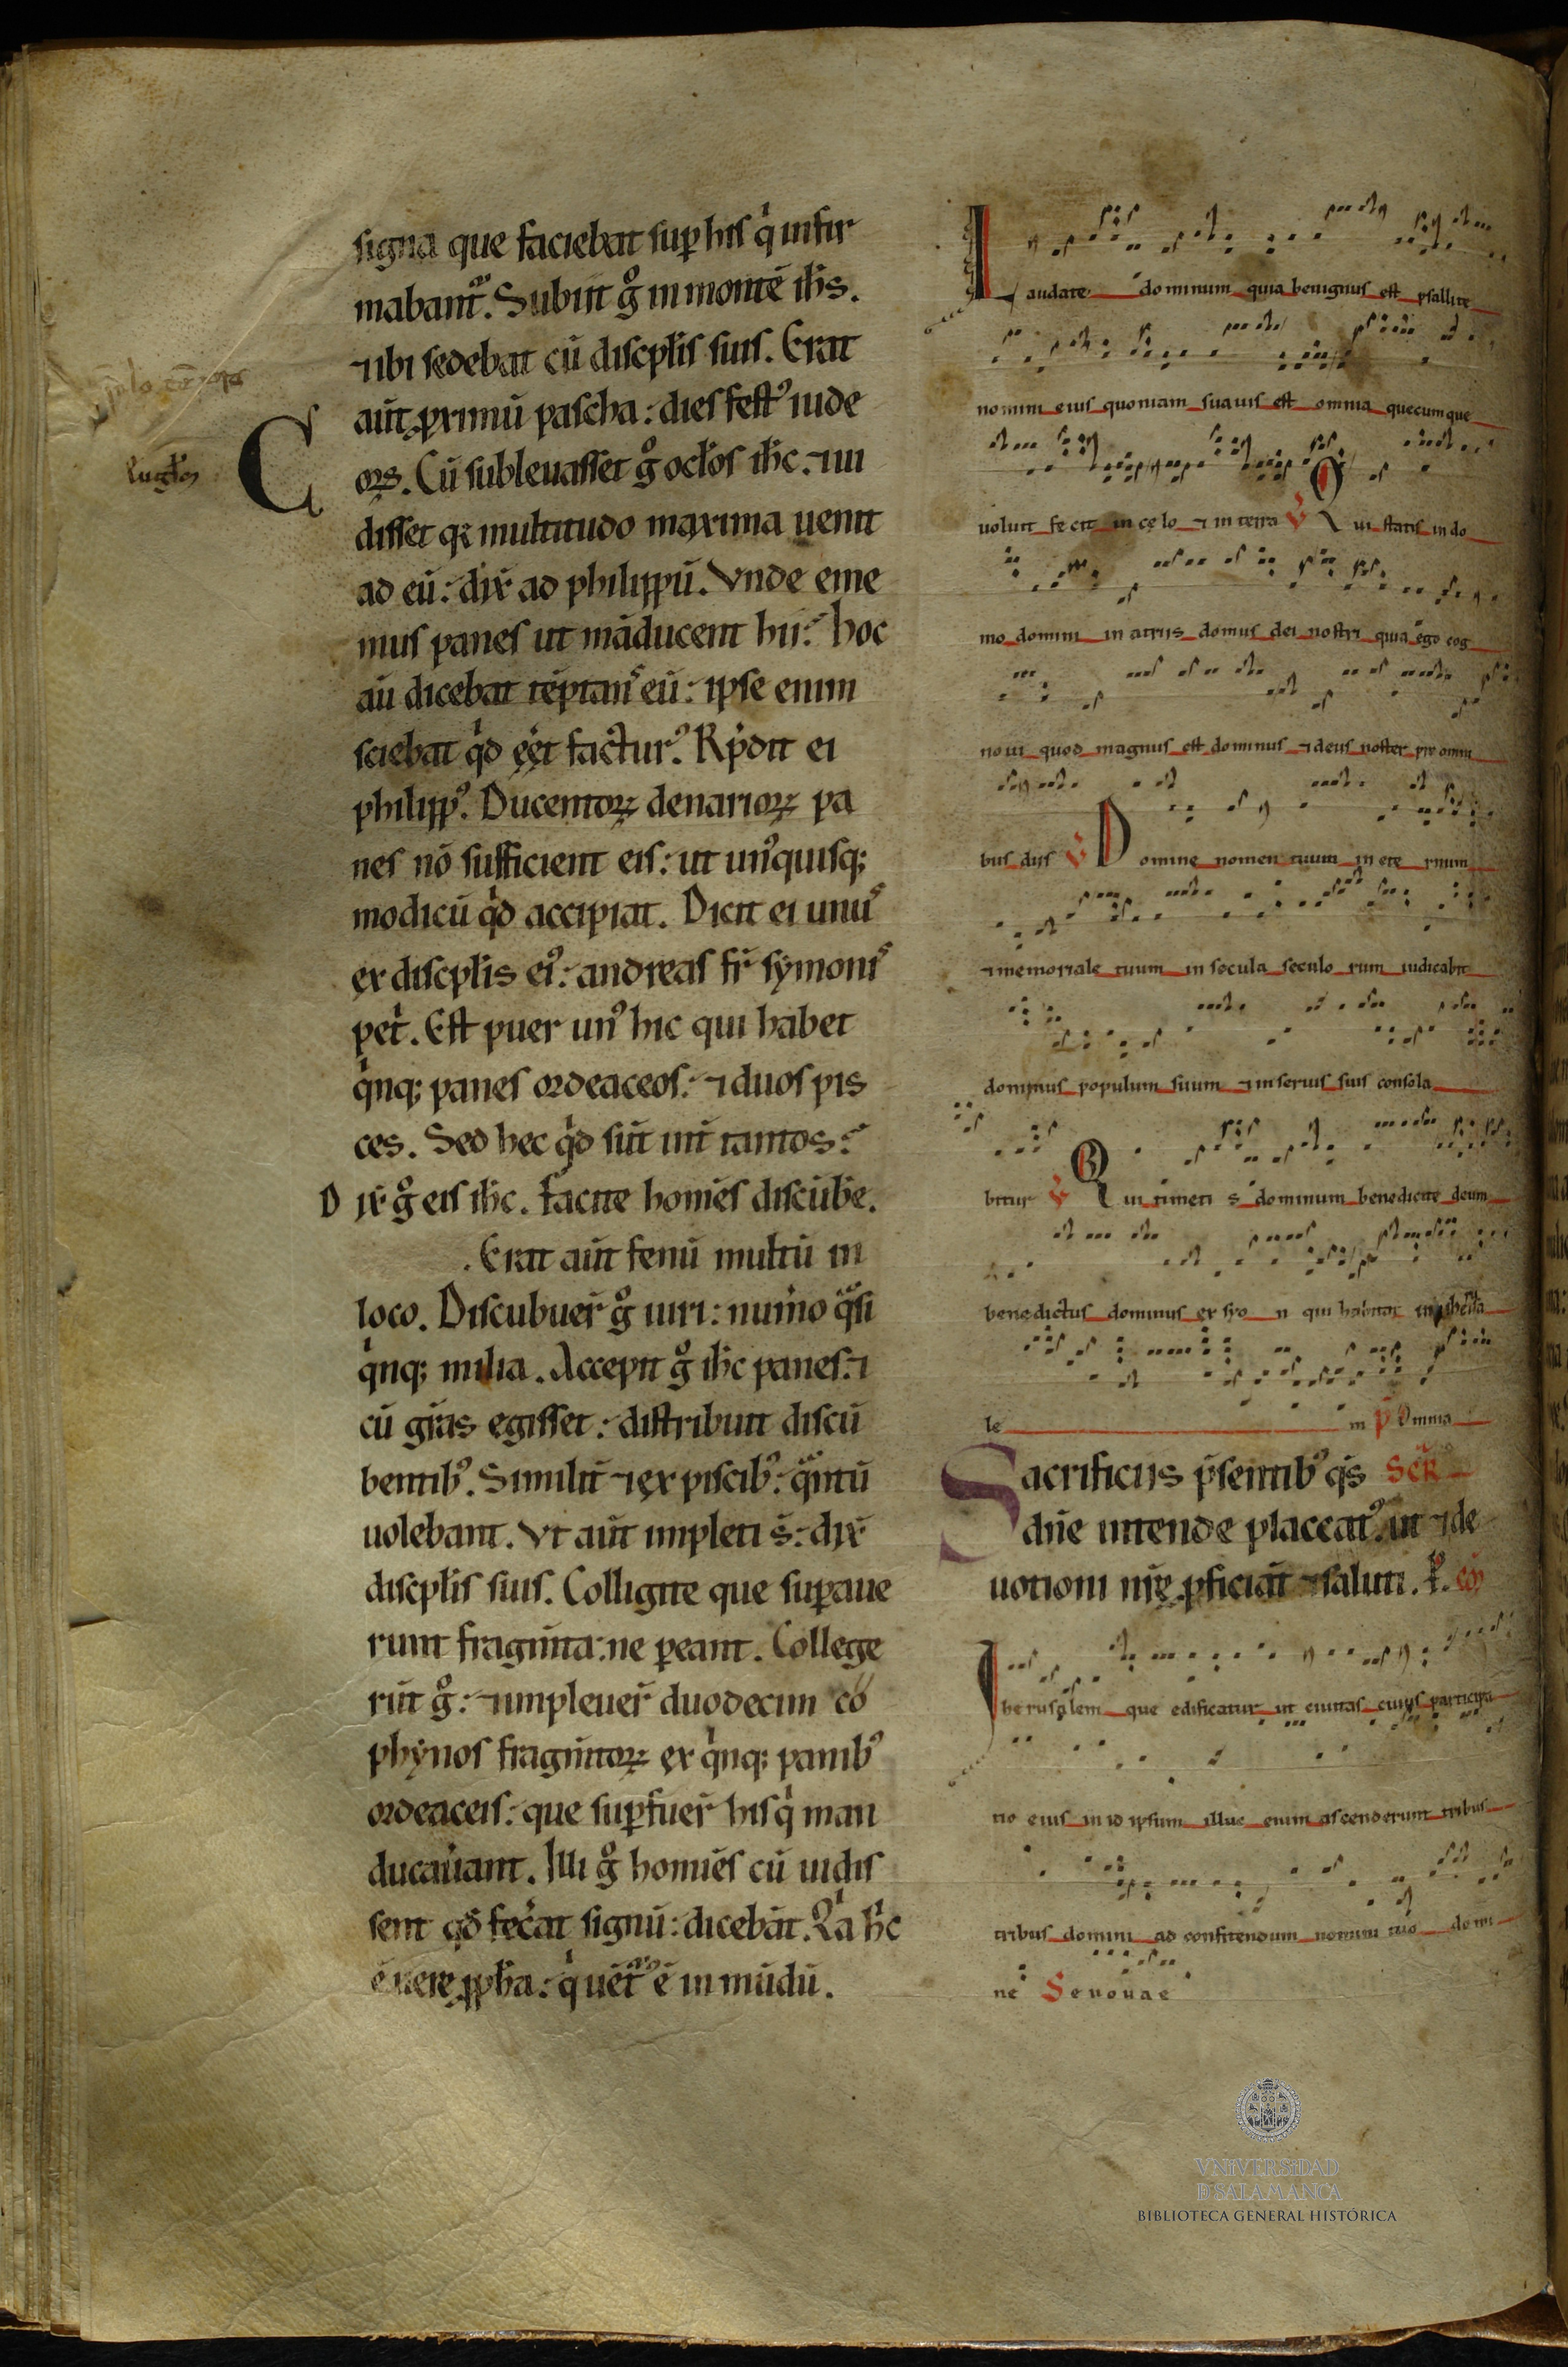 signa que faciebat suꝑ his q̇ infir
mabant᷑. Subiit g̊ in montē ih̄s.
⁊ ibi sedebat cū discpl̄is suis. Erat
aūt ꝓximū pascha: dies fest᷒ iude
oꝝ. Cū subleuasset g̊ ocl̄os ih̄c. ⁊ ui
disset qꝛ multitudo maxima uenit
ad eū: dix̄ ad philippū. Vnde eme
mus panes ut māducent hii? hoc
aū dicebat tēptanˢ eū: ipse enim
sciebat qḋ eēt factur᷒. Rp̄dit ei
philipp᷒. Ducentoꝝ denarioꝝ pa
nes nō sufficient eis: ut un᷒quisq;
modicū qḋ accipiat. Dicit ei unuˢ
ex discpl̄is ei᷒: andreas fr̄ symoniˢ
peṫ. Est puer un᷒ hic qui habet
q̇nq; panes ordeaceos: ⁊ duos pis
ces. Sed hec qḋ sūt int̄ tantos?
Dix̄ g̊ eis ih̄c. Facite homīes discūbe.
. Erat aūt fenū multū in
loco. Discubuer̄ g̊ uiri: num̄o qᵃsi
q̇nq; milia. Accepit g̊ ih̄c panes: ⁊
cū gr̄as egisset: distribuit discū
bentib᷒. Similit̄ ⁊ ex piscib᷒: qᵃntū
uolebant. Vt aūt impleti s̄: dix̄
discpl̄is suis. Colligite que suꝑaue
runt fragm̄ta: ne ꝑeant. College
rūt g̊: ⁊ impleuer̄ duodecim co
phynos fragm̄toꝝ ex q̇nq; panib᷒
ordeaceis: que suꝑfuer̄ his q̇ man
ducauant. Illi g̊ homīes cū uidis
sent qd̄ fec̄at signū: dicebāt. Q̇a h̄c
ē uere ꝓph̄a: q̇ uēt᷑᷒ ē in mūdū.
Laudate dominum quia benignus est psallite
nomini eius quoniam suauis est omnia quecumque
uoluit fecit in celo ⁊ in terra V Qui statis in do
mo domini in atriis domus dei nostri quia ego cog
noui quod magnus est dominus ⁊ deus noster pre omni
bus diis V Domine nomen tuum in ete rnum
⁊ memoriale tuum in secula seculo rum iudicabit
dominus populum suum ⁊ in seruis suis consola
bitur V Qui timeti s dominum benedicite deum
benedictus dominus ex syo n qui habitat in iherusa
le m P̄ Omnia
Sacrificiis p̄sentib᷒ qs̄ Sc̄R
dn̄e intende placat᷒: ut ⁊ de
uotioni nr̄ę ꝓficiāt ⁊ saluti. ꝑ. cō
Iherusalem que edificatur ut ciuitas cuius participa
tio eius in id ipsum illuc enim ascenderunt tribus
tribus domini ad confitendum nomini tuo domi
ne Seuouae
VNIVERSIDAD
D SALAMANCA
BIBLIOTECA GENERAL HISTÓRICA